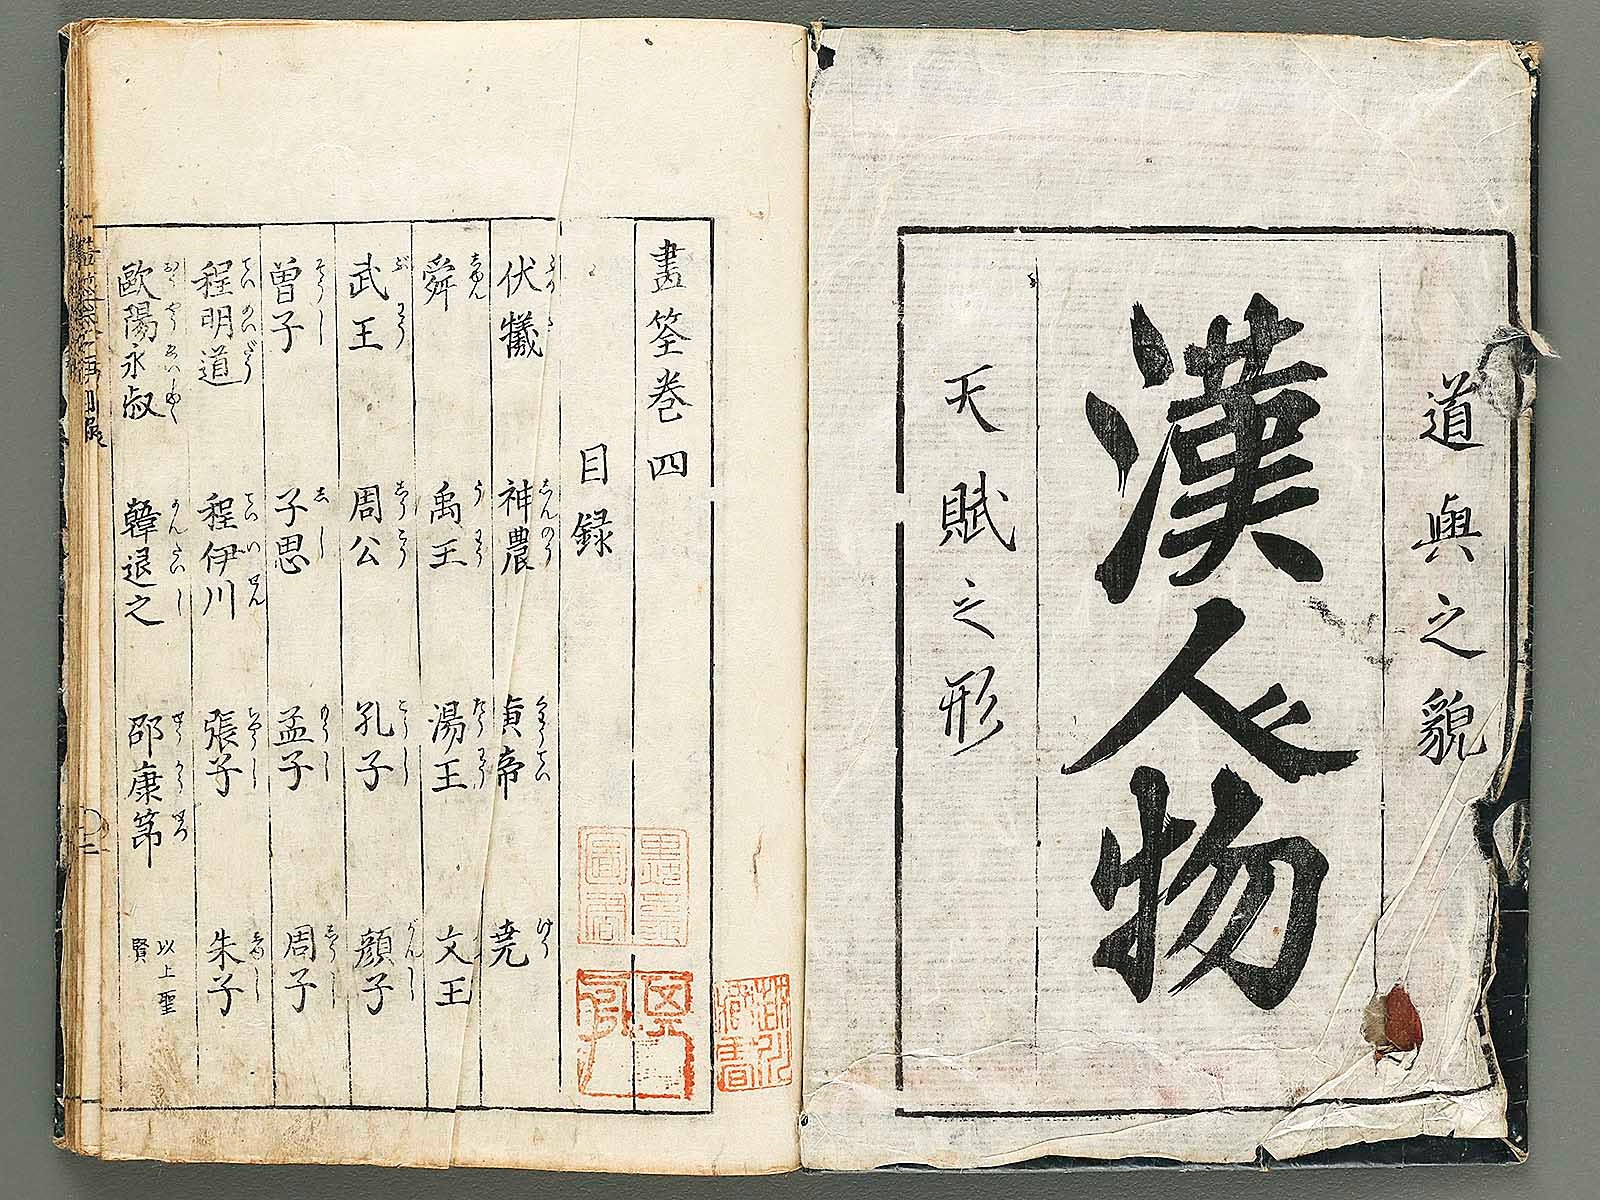 道與之貌
漢人物
天賦之形
畫筌巻四
目録
伏犠 神農 黄帝 尭
舜 禹王 湯王 文王
武王 周公 孔子 顔子
曽子 子思 孟子 周子
程明道 程伊川 張子 朱子
歐陽永叔 韓退之 邵康節 以上聖賢